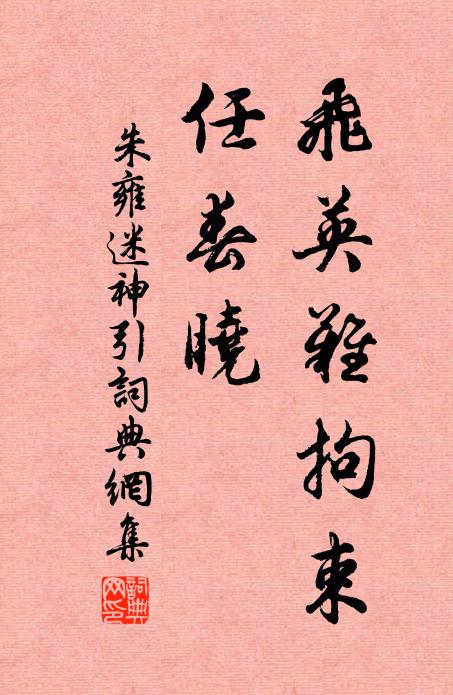 飛英難拘束
任春曉
朱雍迷神引詞典網集
詞典網印